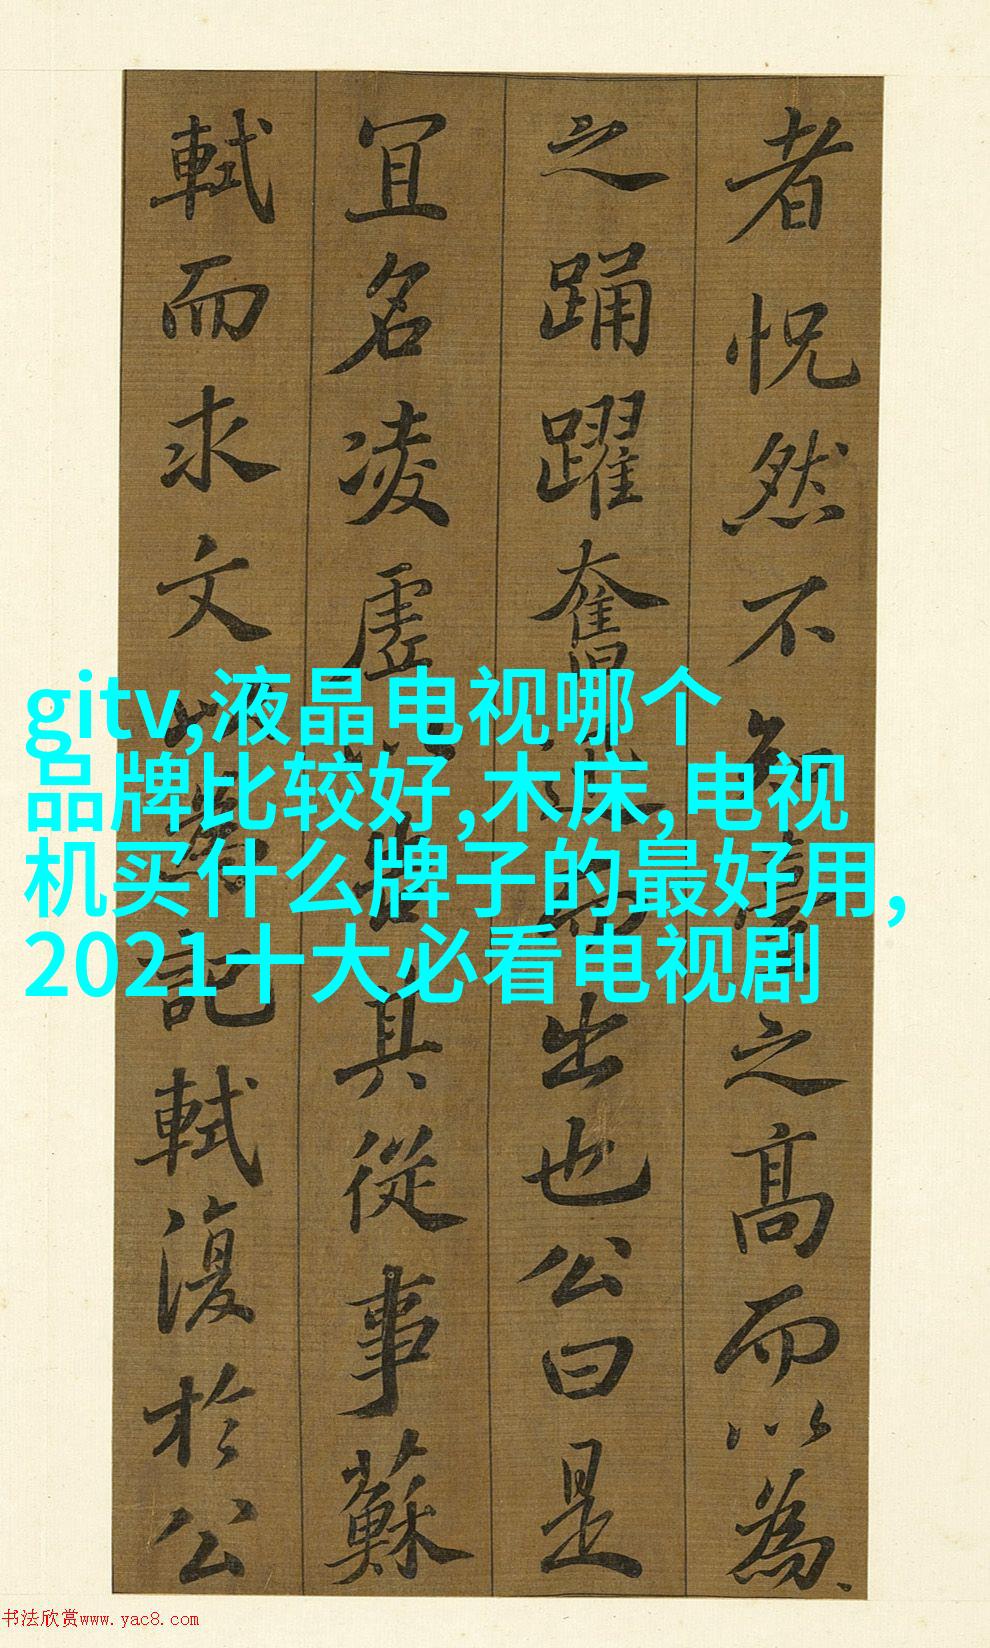 者怳然不知臺之高而以為
之踊躍奮迅而出也公曰是
冝名凌虛以告其從事蘇
軾而求文以為記軾復於公
gitv,液晶电视哪个
品牌比较好,木床,电视
机买什么牌子的最好用,
2021十大必看电视剧
书法欣赏www.yac8.com